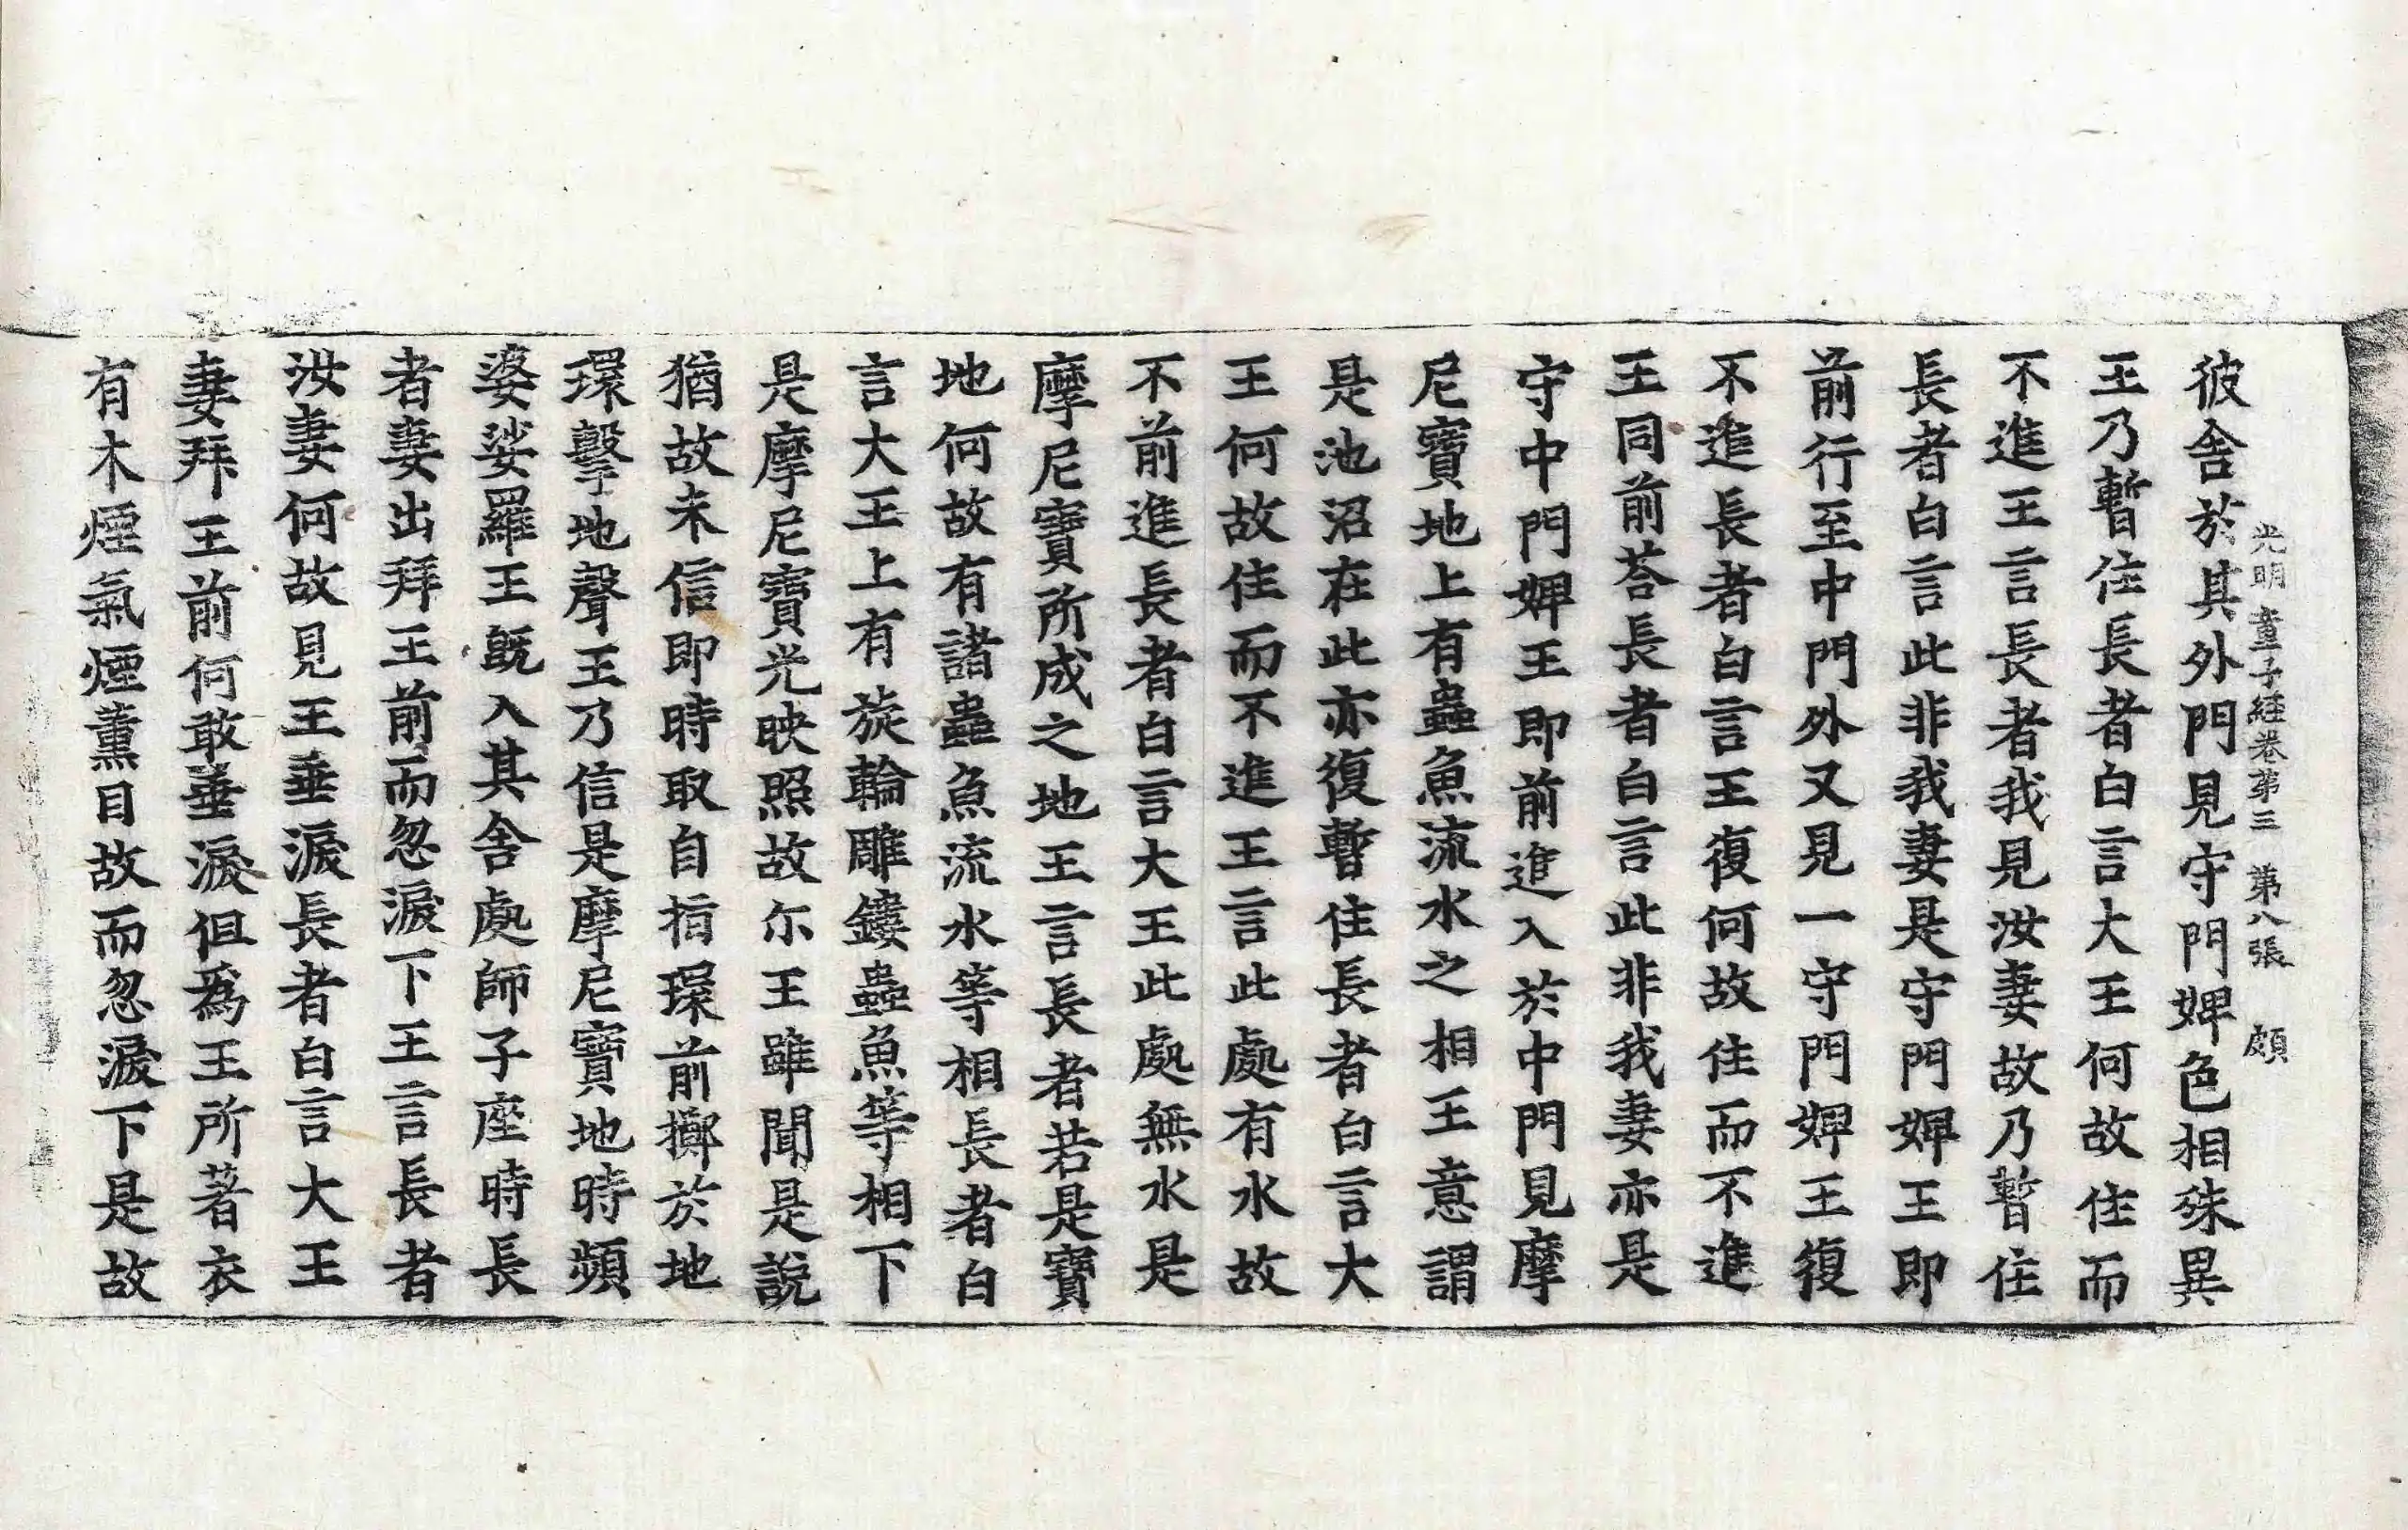 光明童子経卷第三 第八張 頗
彼舍於其外門見守門婢色相殊異
王乃暫住長者白言大王何故住而
不進王言長者我見汝妻故乃暫住
長者白言此非我妻是守門婢王即
前行至中門外又見一守門婢王復
不進長者白言王復何故住而不進
王同前荅長者白言此非我妻亦是
守中門婢王即前進入於中門見摩
尼寶地上有蟲魚流水之相王意謂
是池沼在此亦復暫住長者白言大
王何故住而不進王言此處有水故
不前進長者白言大王此處無水是
摩尼寶所成之地王言長者若是寶
地何故有諸蟲魚流水等相長者白
言大王上有旋輪雕鏤蟲魚等相下
是摩尼寶光映照故尓王雖聞是說
猶故未信即時取自指環前擲於地
環擊地聲王乃信是摩尼寶地時頻
婆娑羅王旣入其舍處師子座時長
者妻出拜王前而忽淚下王言長者
汝妻何故見王垂淚長者白言大王
妻拜王前何敢垂淚但爲王所著衣
有木煙氣煙薰目故而忽淚下是故